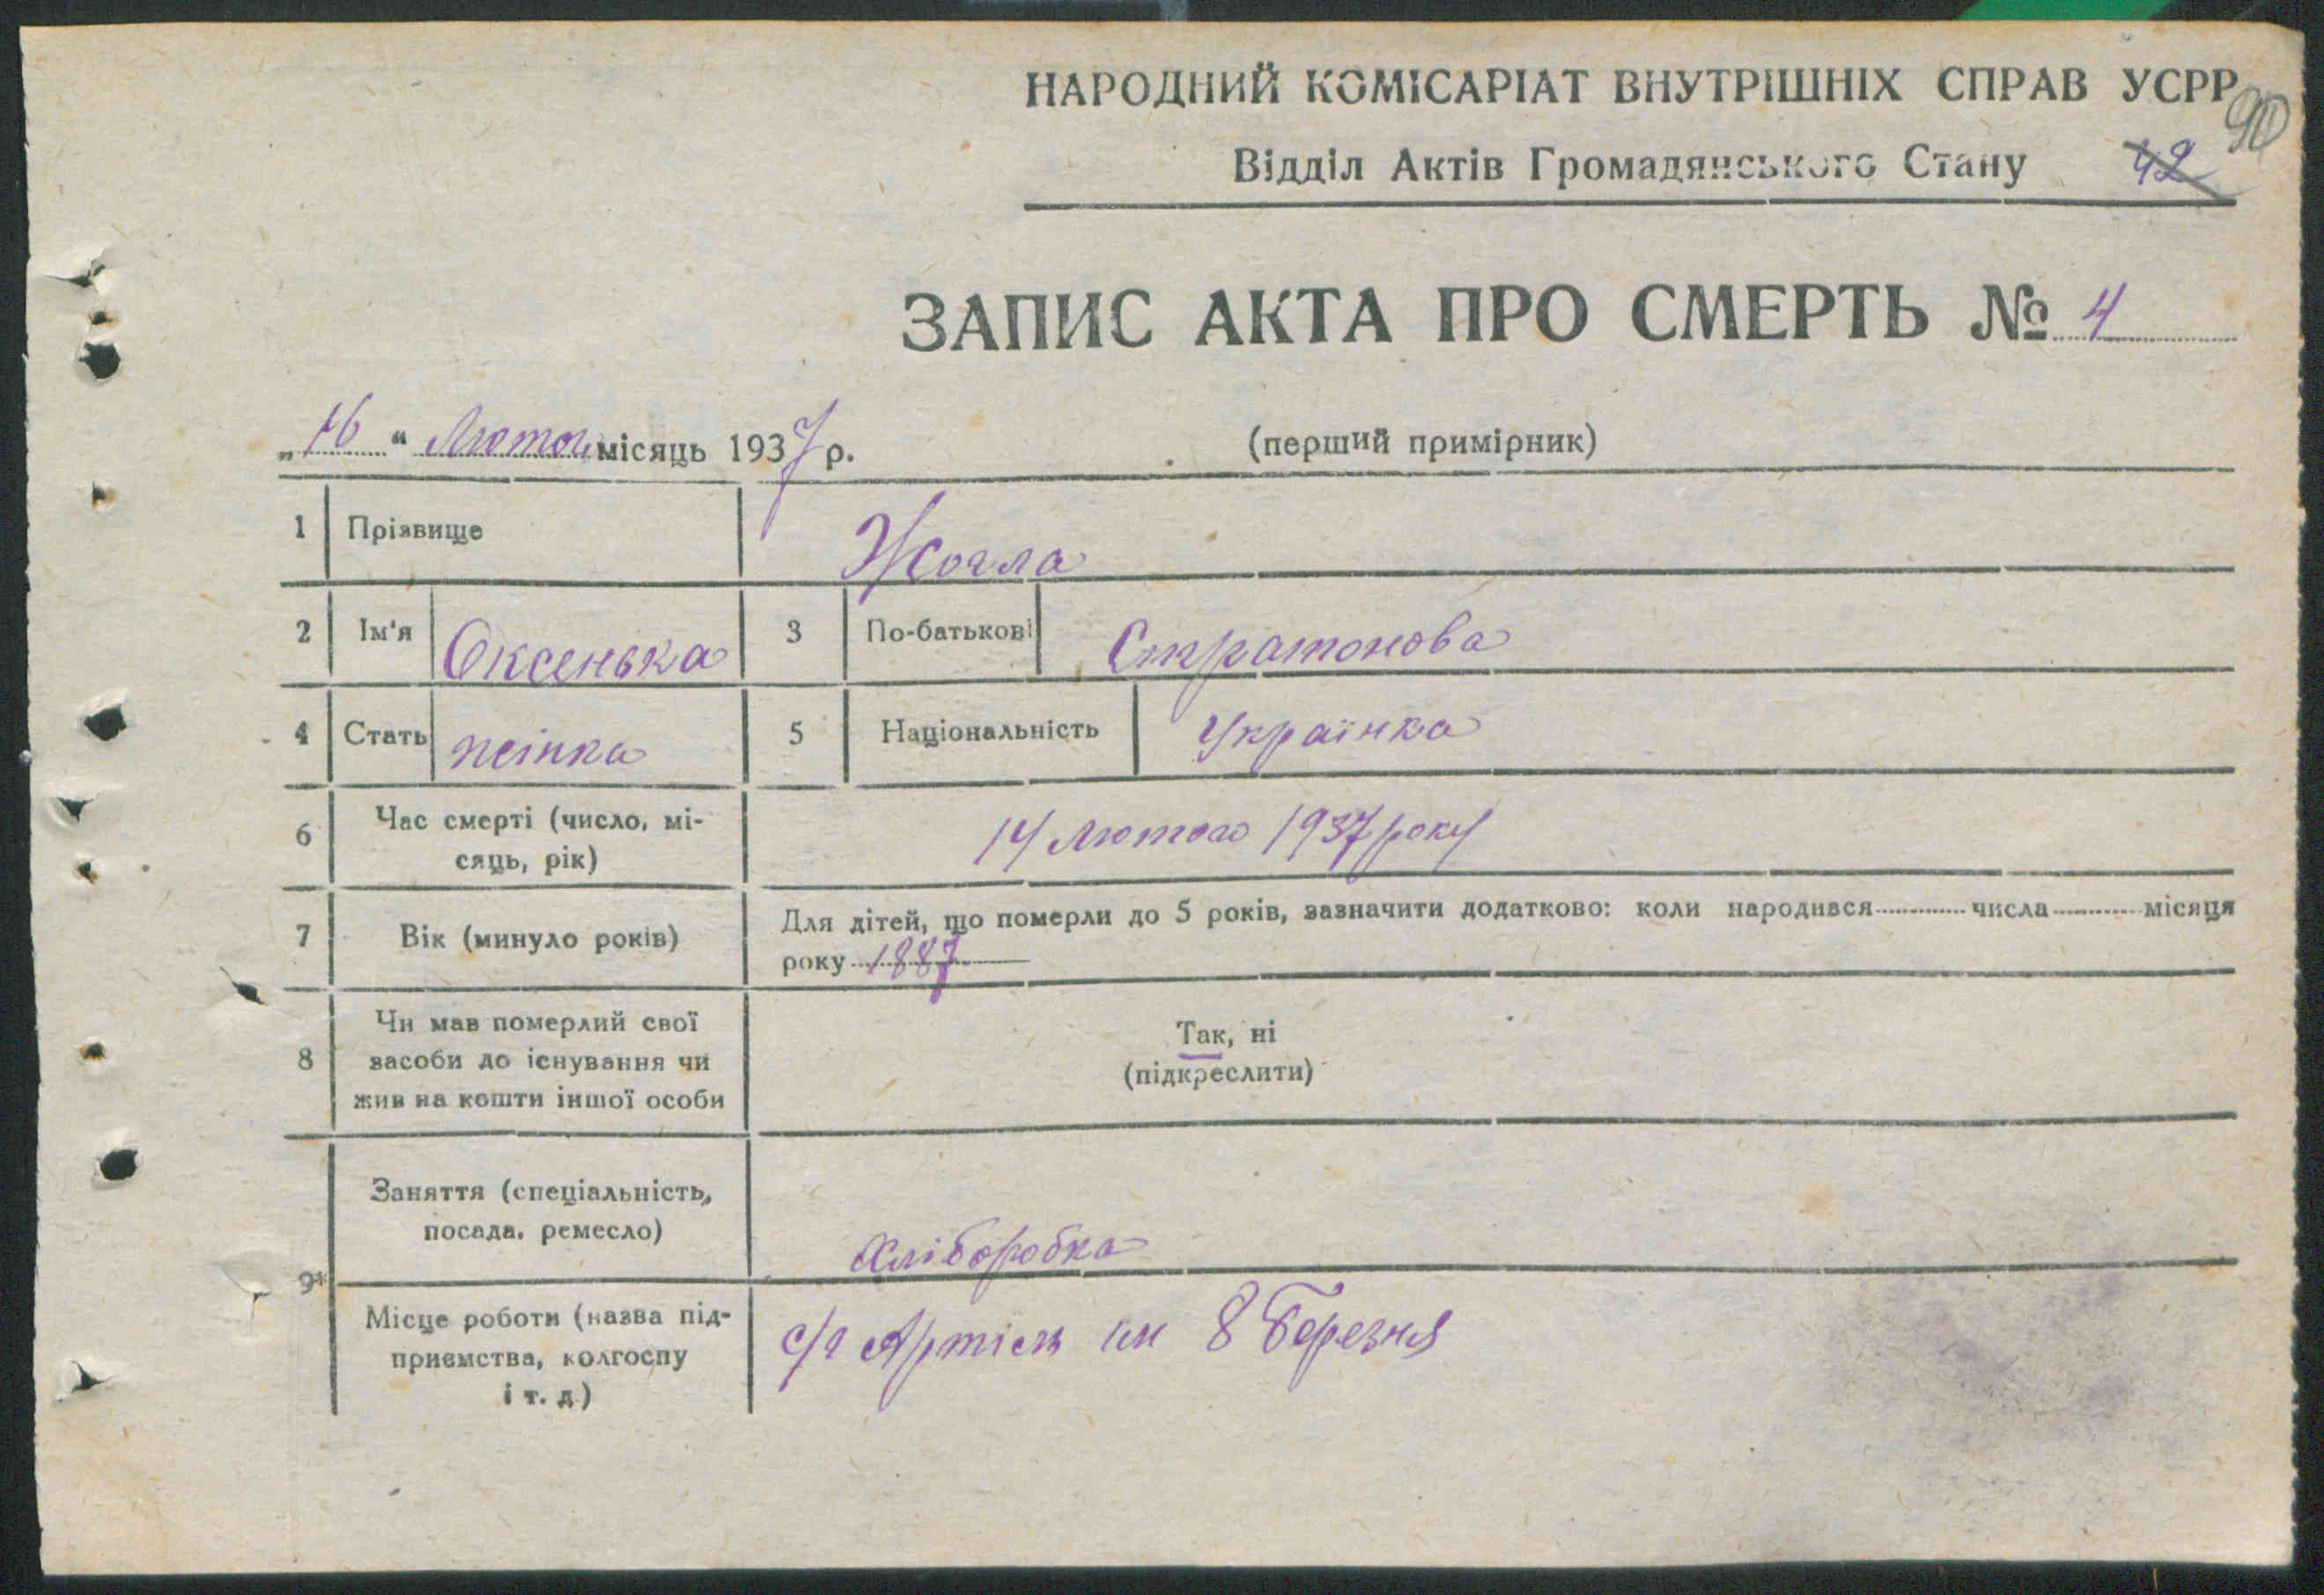 НАРОДНИЙ КОМІСАРІАТ ВНУТРІШНІХ СПРАВ УСРР
90
Відділ Актів Громадянського Стану 42
ЗАПИС АКТА ПРО СМЕРТЬ № 4
„16“ Лютого місяць 1937 р. (перший примірник)
1 Прізвище Жогла
2 Ім'я Оксенька 3 По-батькові Стратонова
4 Стать жінка 5 Національність Українка
6 Час смерті (число, мі-
сяць, рік) 14 Лютого 1937 року
7 Вік (минуло років) Для дітей, що померли до 5 років, зазначити додатково: коли народився числа місяця
року 1887
8 Чи мав померлий свої
засоби до існування чи
жив на кошти іншої особи Так, ні
(підкреслити)
9* Заняття (спеціальність,
посада, ремесло) Хліборобка
Місце роботи (назва під-
приємства, колгоспу
і т. д.) с/г Артіль ім 8 Березня